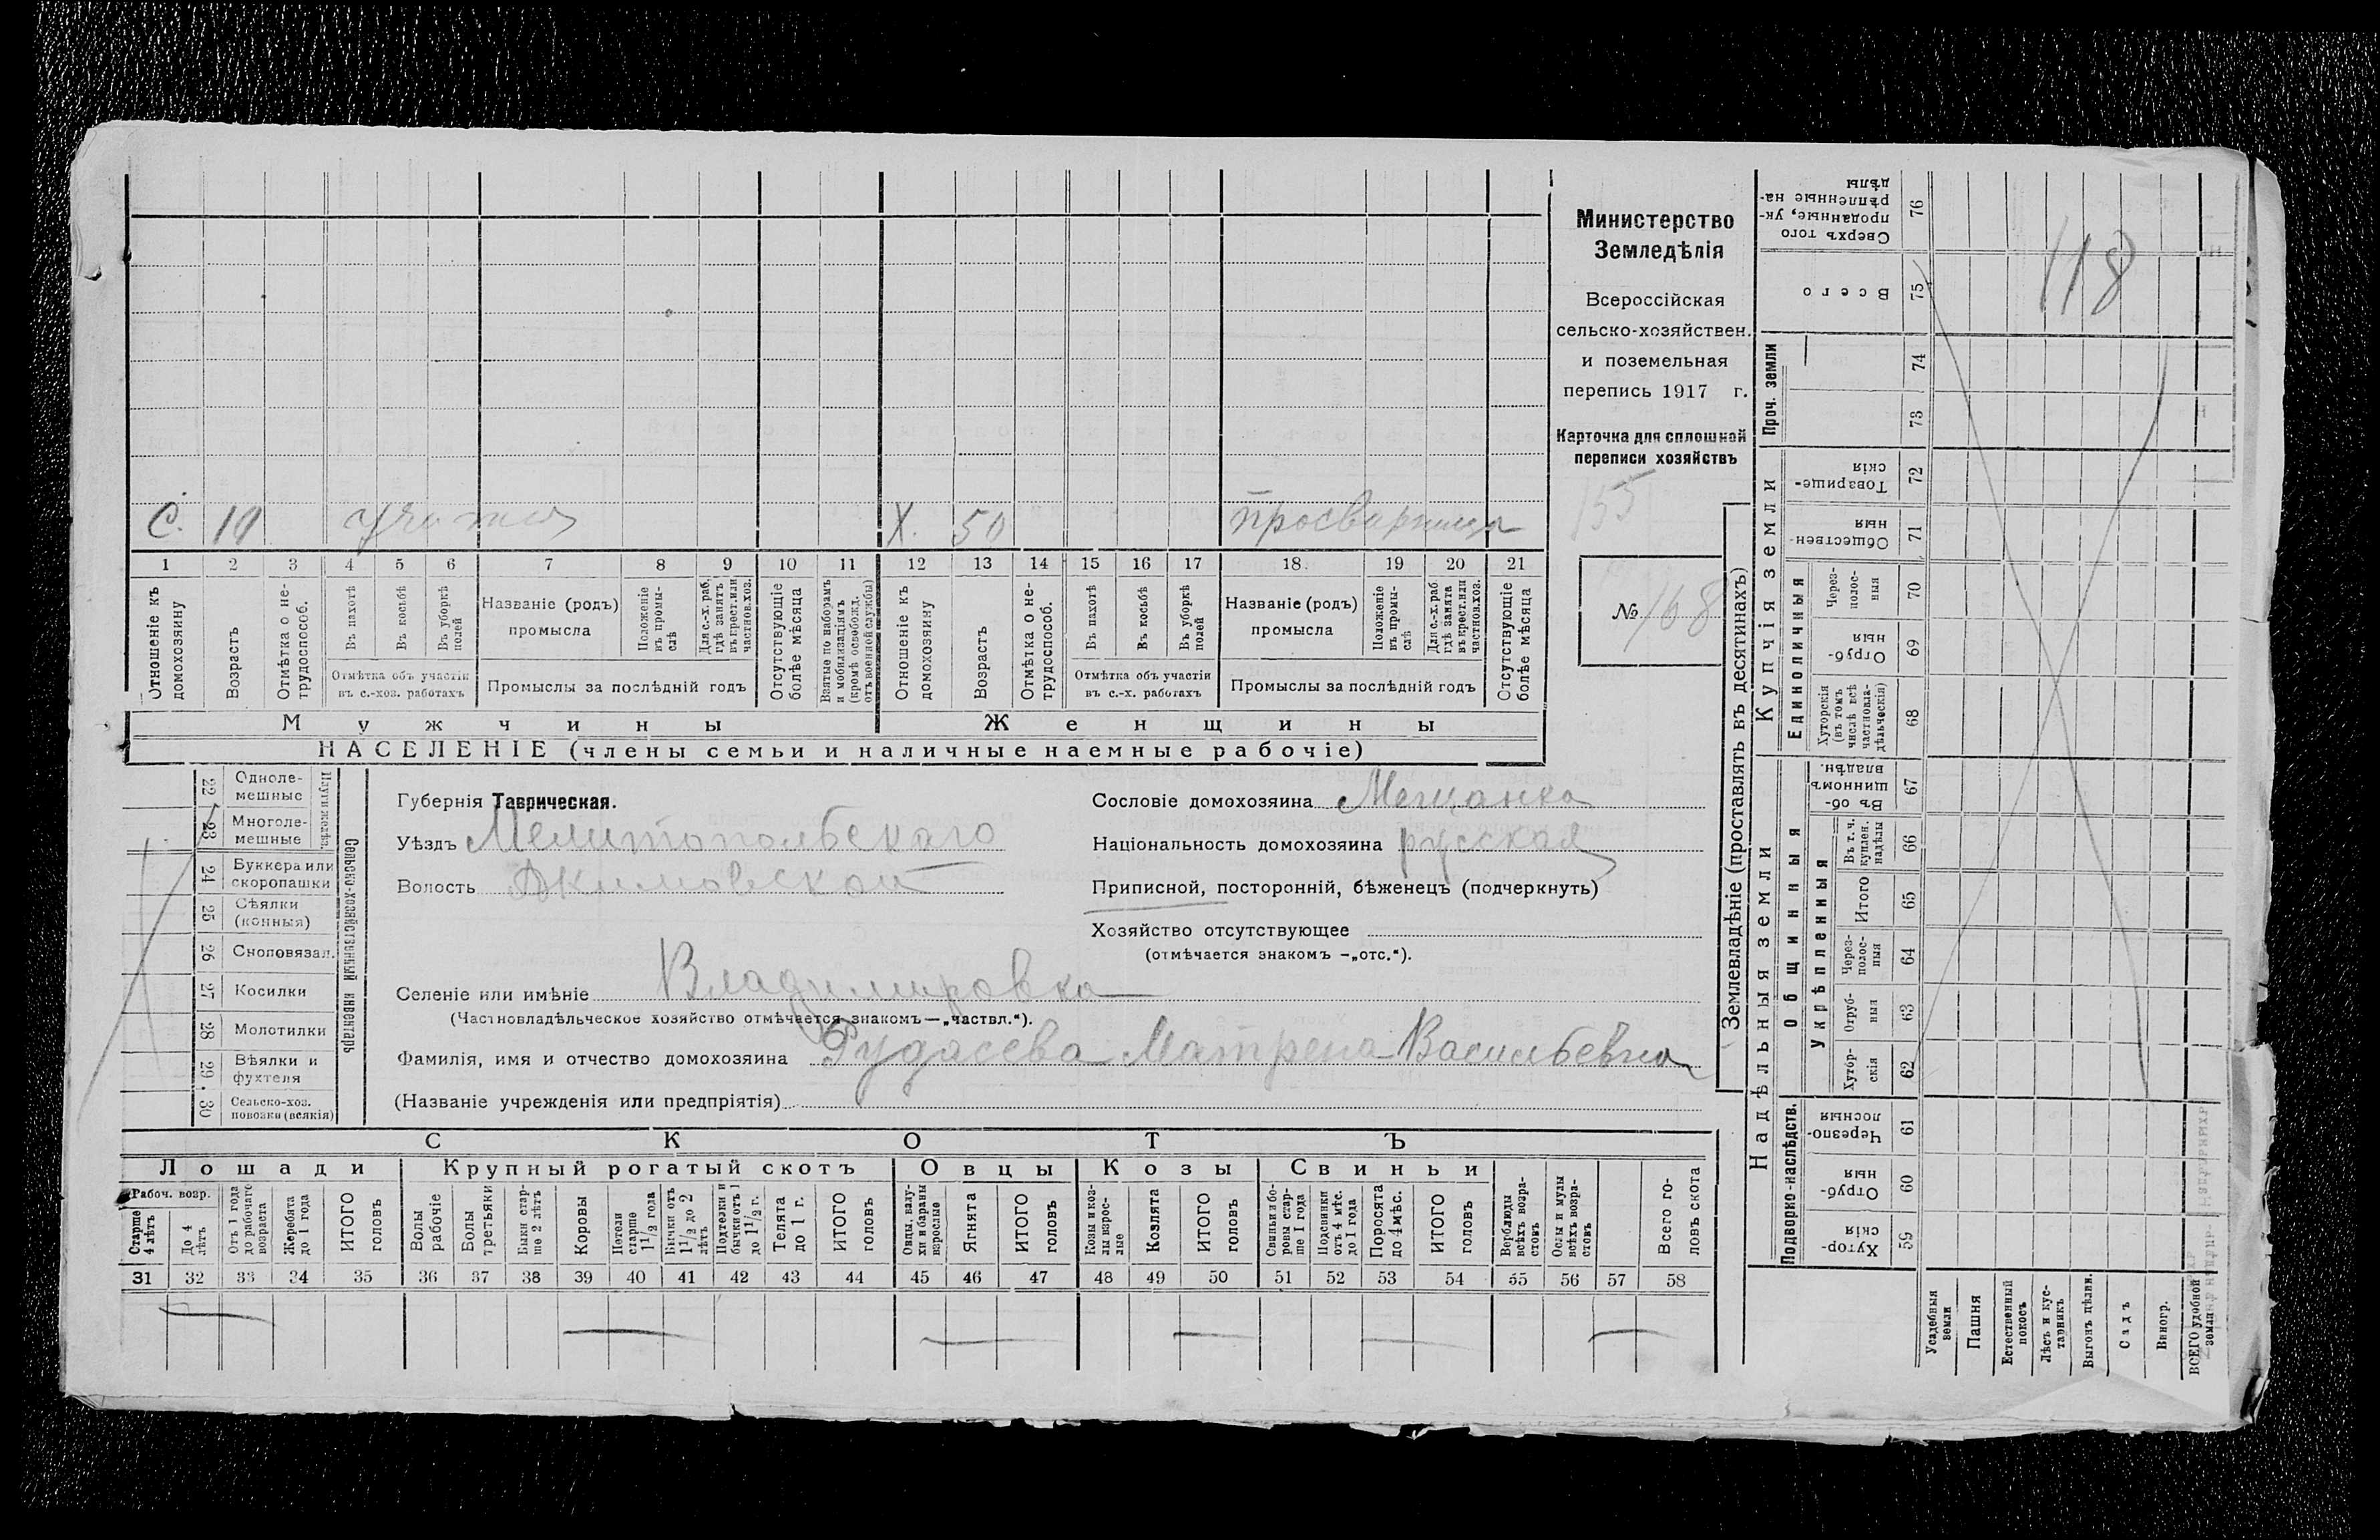 Министерство
Земледѣлія
Всероссійская
сельско-хозяйствен.
и поземельная
перепись 1917 г.
Карточка для сплошной
переписи хозяйствъ
155
№ 168
118
С. 19 50 Х. просвирница
1 2 3 4 5 6 7 8 9 10 11 12 13 14 15 16 17 18 19 20 21
Отношеніе къ домохозяину
Возрастъ
Отмѣтка о не-
трудоспособ.
Въ пахотѣ
Въ косьбѣ
Въ уборкѣ полей
Отмѣтка объ участіи
въ с.-хоз. работахъ
Названіе (родъ)
промысла
Положеніе
въ промы-
слѣ
Для с.-х. раб,
гдѣ занятъ
въ крест. или
частнов. хоз.
Промыслы за послѣдній годъ
Отсутствующіе
болѣе мѣсяца
Взятые по наборамъ
и мобилизаціямъ
(кромѣ освобожд.
отъ военной службы)
Отношеніе къ
домохозяину
Возрастъ
Отмѣтка о не-
трудоспособ.
Въ пахотѣ
Въ косьбѣ
Въ уборкѣ
полей
Отмѣтка объ участіи
въ с.-х. работахъ
Названіе (родъ)
промысла
Положеніе
въ промы-
слѣ
Для с.-х. раб
гдѣ занята
въ крест. или
частнов. хоз.
Промыслы за послѣдній годъ
Отсутствующіе
болѣе мѣсяца
Мужчины
Женщины
НАСЕЛЕНІЕ (члены семьи и наличные наемные рабочіе)
22 Одноле-
мешные
23 Многоле-
мешные
24 Буккера или
скоропашки
25 Сѣялки
(конныя)
26 Сноповязал.
27 Косилки
28 Молотилки
29 Вѣялки и
фухтеля
30 Сельско-хоз.
повозки (всякія)
Сельско-хозяйственный инвентарь
Губернія Таврическая.
Уѣздъ Мелитопольскаго
Волость Акимовской
Сословіе домохозяина Мещанка
Національность домохозяина русская
Приписной, посторонній, бѣженецъ (подчеркнуть)
Хозяйство отсутствующее
(отмѣчается знакомъ -„отс.“).
Селеніе или имѣніе Владимировка
(Частновладѣльческое хозяйство отмѣчается знакомъ—„частвл.“).
Фамилія, имя и отчество домохозяина Рудасева Матрена Васильевна
(Названіе учрежденія или предпріятія)
СКОТЪ
Лошади
Крупный рогатый скотъ
Овцы
Козы
Свиньи
Рабоч. возр.
Старше
4 лѣтъ
До 4
лѣтъ
Отъ 1 года
до рабочаго
возраста
Жеребята
до 1 года
ИТОГО
головъ
Волы
рабочіе
Волы
третьяки
Быки стар-
ше 2 лѣтъ
Коровы
Нетели
старше
1 1/2 года
Бычки отъ
1 1/2 до 2
лѣтъ
Подтелки и
бычки отъ 1
до 1 1/2 г.
Телята
до 1 г.
ИТОГО
головъ
Овцы, валу-
хи и бараны
взрослые
Ягнята
ИТОГО
головъ
Козы и коз-
лы взрос-
лые
Козлята
ИТОГО
головъ
Свиньи и бо-
ровы стар-
ше 1 года
Подсвинки
отъ 4 мѣс.
до 1 года
Поросята
до 4 мѣс.
ИТОГО
головъ
Верблюды
всѣхъ возра-
стовъ
Ослы и мулы
всѣхъ возра-
стовъ
Всего го-
ловъ скота
31 32 33 34 35 36 37 38 39 40 41 42 43 44 45 46 47 48 49 50 51 52 53 54 55 56 57 58
Землевладѣніе (проставлять въ десятинахъ)
Надѣльныя земли
Купчія земли
Проч. земли
Подворно-наслѣдств.
Общинныя
Укрѣпленныя
Единоличныя
Хутор-
скія 59
Отруб-
ныя 60
Черезпо-
лосныя 61
Хутор-
скія 62
Отруб-
ныя 63
Через-
полос-
ныя 64
Итого 65
Въ т. ч.
куплен.
надѣлы 66
Въ об-
щинномъ
владѣн. 67
Хуторскія
(въ томъ
числѣ всѣ
частновла-
дѣльческія) 68
Отруб-
ныя 69
Через-
полос-
ныя 70
Обществен-
ныя 71
Товарище-
скія 72
73
74
Всего 75
Сверхъ того
проданные, ук-
рѣпленные на-
дѣлы 76
Усадебныя
земли
Пашня
Естественный
покосъ
Лѣсъ и кус-
тарникъ
Выгонъ цѣлин.
Садъ
Виногр.
ВСЕГО удобной
земли